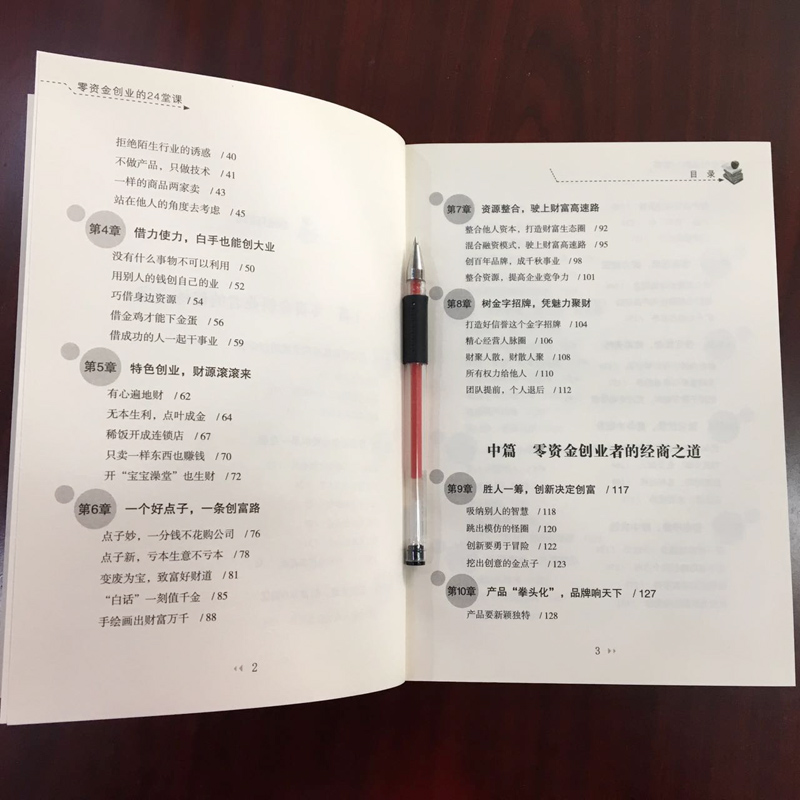 零资金创业的24堂课
拒绝陌生行业的诱惑 /40
不做产品，只做技术 /41
一样的商品两家卖 /43
站在他人的角度去考虑 /45
第4章 借力使力，白手也能创大业
没有什么事物不可以利用 /50
用别人的钱创自己的业 /52
巧借身边资源 /54
借金鸡才能下金蛋 /56
借成功的人一起干事业 /59
第5章 特色创业，财源滚滚来
有心遍地财 /62
无本生利，点叶成金 /64
稀饭开成连锁店 /67
只卖一样东西也赚钱 /70
开“宝宝澡堂”也生财 /72
第6章 一个好点子，一条创富路
点子妙，一分钱不花购公司 /76
点子新，亏本生意不亏本 /78
变废为宝，致富好财道 /81
“白话”一刻值千金 /85
手绘画出财富万千 /88
2
目 录
第7章 资源整合，驶上财富高速路
整合他人资本，打造财富生态圈 /92
混合融资模式，驶上财富高速路 /95
创百年品牌，成千秋事业 /98
整合资源，提高企业竞争力 /101
第8章 树金字招牌，凭魅力聚财
打造好信誉这个金字招牌 /104
精心经营人脉圈 /106
财聚人散，财散人聚 /108
所有权力给他人 /110
团队提前，个人退后 /112
中篇 零资金创业者的经商之道
第9章 胜人一筹，创新决定创富 /117
吸纳别人的智慧 /118
跳出模仿的怪圈 /120
创新要勇于冒险 /122
挖出创意的金点子 /123
第10章 产品“拳头化”，品牌响天下 /127
产品要新颖独特 /128
3